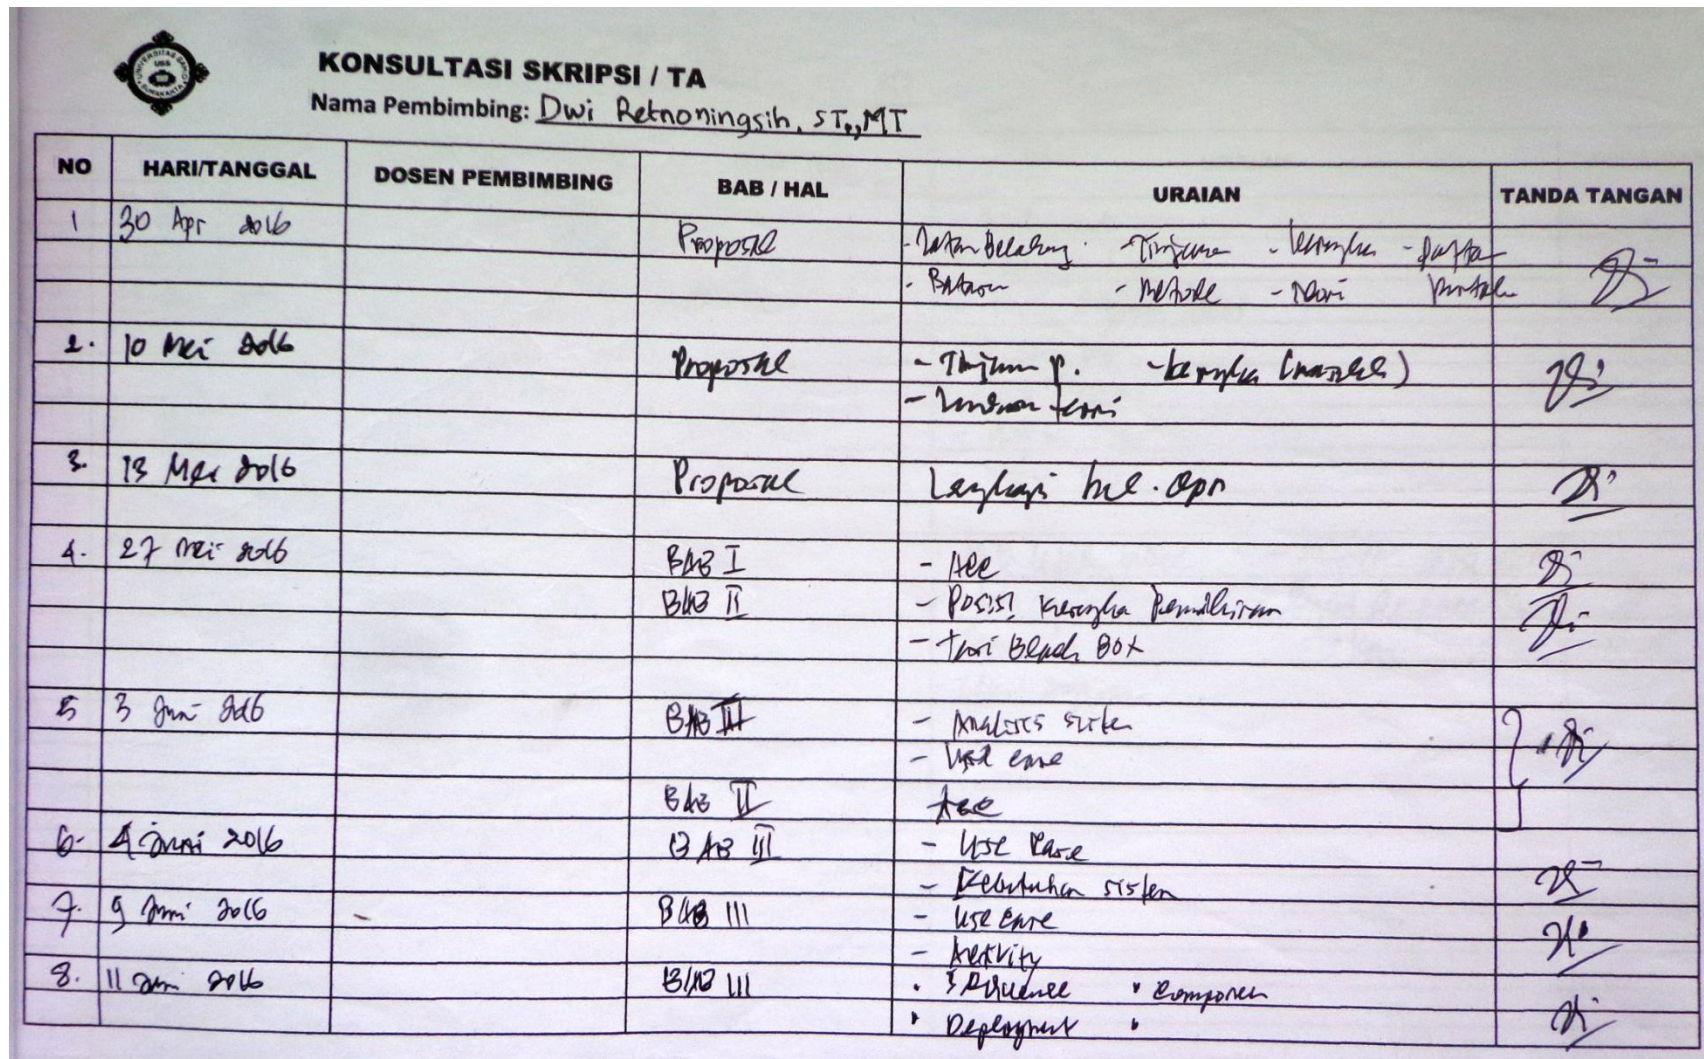 KONSULTASI SKRIPSI / TA
Nama Pembimbing: Dwi Retnoningsih, ST,, MT
NO HARI/TANGGAL DOSEN PEMBIMBING BAB / HAL URAIAN TANDA TANGAN
1 30 Apr 2016 Proposal - Latar Belakang - Tinjauan - kerangka - Daftar
- Batasan - Metode - Teori Pustaka
2. 10 Mei 2016 Proposal - Tinjauan p. - kerangka (masalah)
- Landasan teori
3. 13 Mei 2016 Proposal Lengkapi hal.
4. 27 Mei 2016 BAB I - Acc
BAB II - Posisi kerangka Pemikiran
- Teori Black Box
5 3 Juni 2016 BAB III - Analisis sistem
- Use case
BAB II Acc
6. 4 Juni 2016 BAB III - Use Case
- Kebutuhan sistem
7. 9 Juni 2016 - BAB III - Use case
- Activity
8. 11 Juni 2016 BAB III • Sequence • Componen
• Deployment •